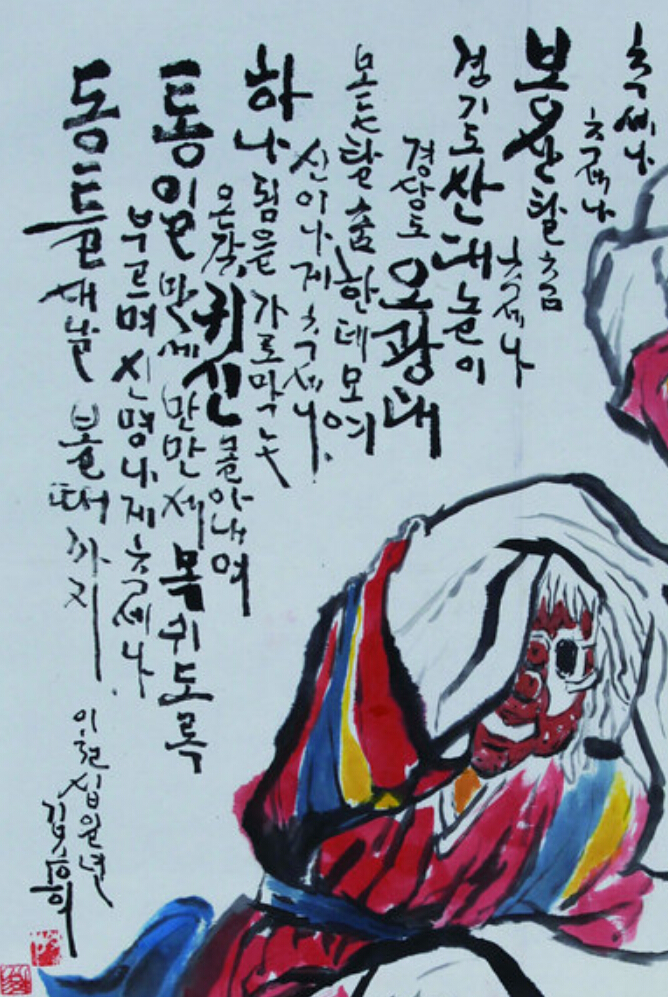 추세나
추세나
봉산탈춤
추세나
경기도산대놀이
경상도 오광대
모든탈춤 한데모여
신이나게 추세나.
하나됨을 가로막는
온갖 귀신 몰아내여
통일만세 만만세 목쉬도록
부르며 신명나게 추세나.
동틀 새날 볼때까지.
이천십일년